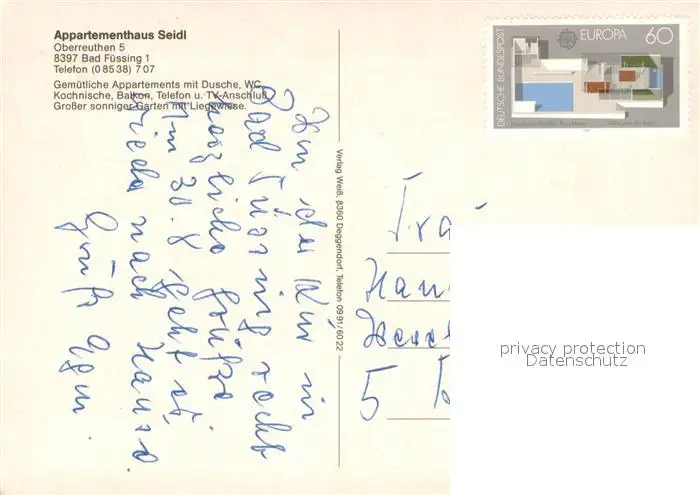 Appartementhaus Seidl
Oberreuthen 5
8397 Bad Füssing 1
Telefon (0 85 38) 7 07
Gemütliche Appartements mit Dusche, WC,
Kochnische, Balkon, Telefon u. TV-Anschluß.
Großer sonniger Garten mit Liegewiese.
Von der Kur in
Bad Füssing recht
herzliche Grüße
Am 30.8. geht es
wieder nach Hause.
Gruß
Verlag Weiß, 8360 Deggendorf, Telefon 0991/6022
DEUTSCHE BUNDESPOST
EUROPA 60
Frau
5
privacy protection
Datenschutz